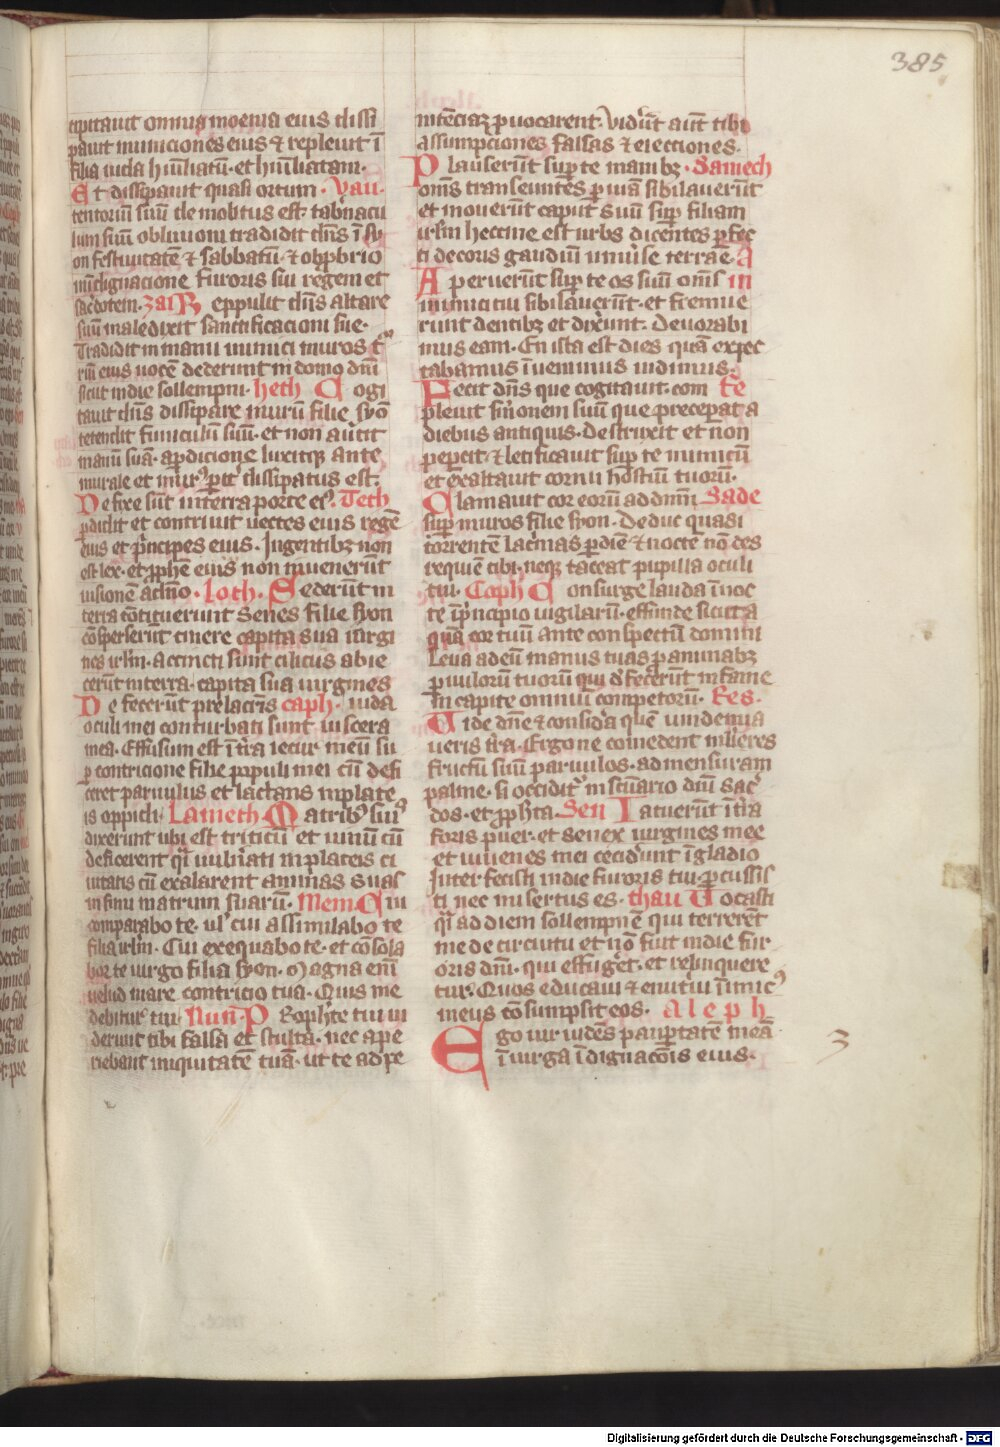 385
cipitauit omnia moenia eius dissi
pauit municiones eius & repleuit ī
filia iuda hūiliatū · et hūiliatam ·
Et dissipauit quasi ortum · Vau ·
tentoriū suū demolitus est · tab'nacu
lum suū obliuioni tradidit dn̄s ī sy
on festiuitatē & sabbatū · & obprobrio
īdignacione furoris sui regem et
sac'dotem · zai R eppulit dn̄s altare
suū maledixit sanctificacioni sue ·
Tradidit in manu inimici muros t'
riū eius uocē dederunt in domo dn̄i
sicut in die sollempni · heth C ogi
tauit dn̄s dissipare murū filie syō
tetendit funiculū suū · et non au'tit
manū suā · a p̱dicione luxitq̄ ante
murale et mur' p̱it' dissipatus est ·
De fixe sūt in terra porte ei' · Teth
p̱didit et contriuit uectes eius regē
eius et p'ncipes eius · In gentibꝫ non
est lex · et ꝓph'e eius non inuenerūt
uisionē a dn̄o · Loth · Sederūt in
terra cōticuerunt senes filie syon
cōsperserūt cinere capita sua iūrgi
nes irl'm · accincti sunt ciliciis abie
cerūt in terra · capita sua uirgines
De fecerūt pre lacri'is caph · iuda
oculi mei conturbati sunt uiscera
mea · Effusum est ī t'ra iecur meū su
ꝑ contricione filie populi mei cū defi
ceret paruulus et lactans in plate
is oppidi · Lameth M atribꝫ sui'
dixerunt ubi est triticū et uinū cū
deficerent q̄i uuln'ati in plateis ci
uitatis cū exalarent animas suas
in sinu matrum suarū · Mem · C ui
comparabo te · ul' cui assimilabo te
filia irl'm · Cui exequabo te · et cōsola
bor te uirgo filia syon · Magna enī
uelud mare contricio tua · Quis me
debitur tui · Nun · P rophete tui ui
derunt tibi falsa et stulta · nec ape
riebant iniquitatē tuā · ut te ad pe
nitēciaꝫ ꝓuocarent · Viderūt aūt tibi
assumpciones falsas & eiecciones ·
P lauserūt sup̱ te manibꝫ · Samech
om̄s transeuntes ꝑ uiā sibilauerūt
et mouerūt caput suū sup̱ filiam
irl'm heccine est urbs dicentes ꝑfec
ti decoris gaudiū uniuse terrae · A
A peruerūt sup̱ te os suū om̄s in
inimici tui sibilauerūt · et fremue
runt dentibꝫ et dixerunt · Deuorabi
mus eam · En ista est dies quā expec
tabamus īuenimus uidimus ·
Fecit dn̄s que cogitauit · com fe
pleuit s'monem suū que precepat a
diebus antiquis · Destruxit et non
pepercit · & letificauit sup̱ te inimicū
et exaltauit cornu hostiū tuorū ·
C lamauit cor eorū ad dn̄m Sade
sup̱ muros filie syon · Deduc quasi
torrentē lac'mas ꝑ diē & noctē nō des
requiē tibi · neqꝫ taceat pupilla oculi
tui · Coph C onsurge lauda ī noc
te ī principio uigiliarū · effunde sicut a
quā cor tuū ante conspectū domini
Leua ad eū manus tuas ꝑ animabꝫ
ꝑuulorū tuorū qui d'fecerūt in fame
In capite omniū competorū · Res ·
Vide dn̄e & consid'a quē uindemia
ueris t'ra · Ergo ne comedent mlieres
fructū suū paruulos · ad mensuram
palme · si occidit' in sc'uario dn̄i sac'
dos · et ꝓph'ta · Sen I acuerūt ī t'ra
foris puer · et senex uirgines mee
et iuuenes mei cecid'unt ī gladio
Inter fecisti in die furoris tui · ꝑcussis
ti nec misertus es · thau V ocasti
q̄i ad diem sollempnē qui terrerēt
me de circuitu et nō fuit in die fur
oris dn̄i · qui effug'et · et relinquere
tur · Quos educaui & enutiui īimic'
meus cō sumpsit eos · Aleph
Ego uir uidēs paup̱tatē meā
ī uirga ī dignacōis eius ·
3
Digitalisierung gefördert durch die Deutsche Forschungsgemeinschaft - DFG